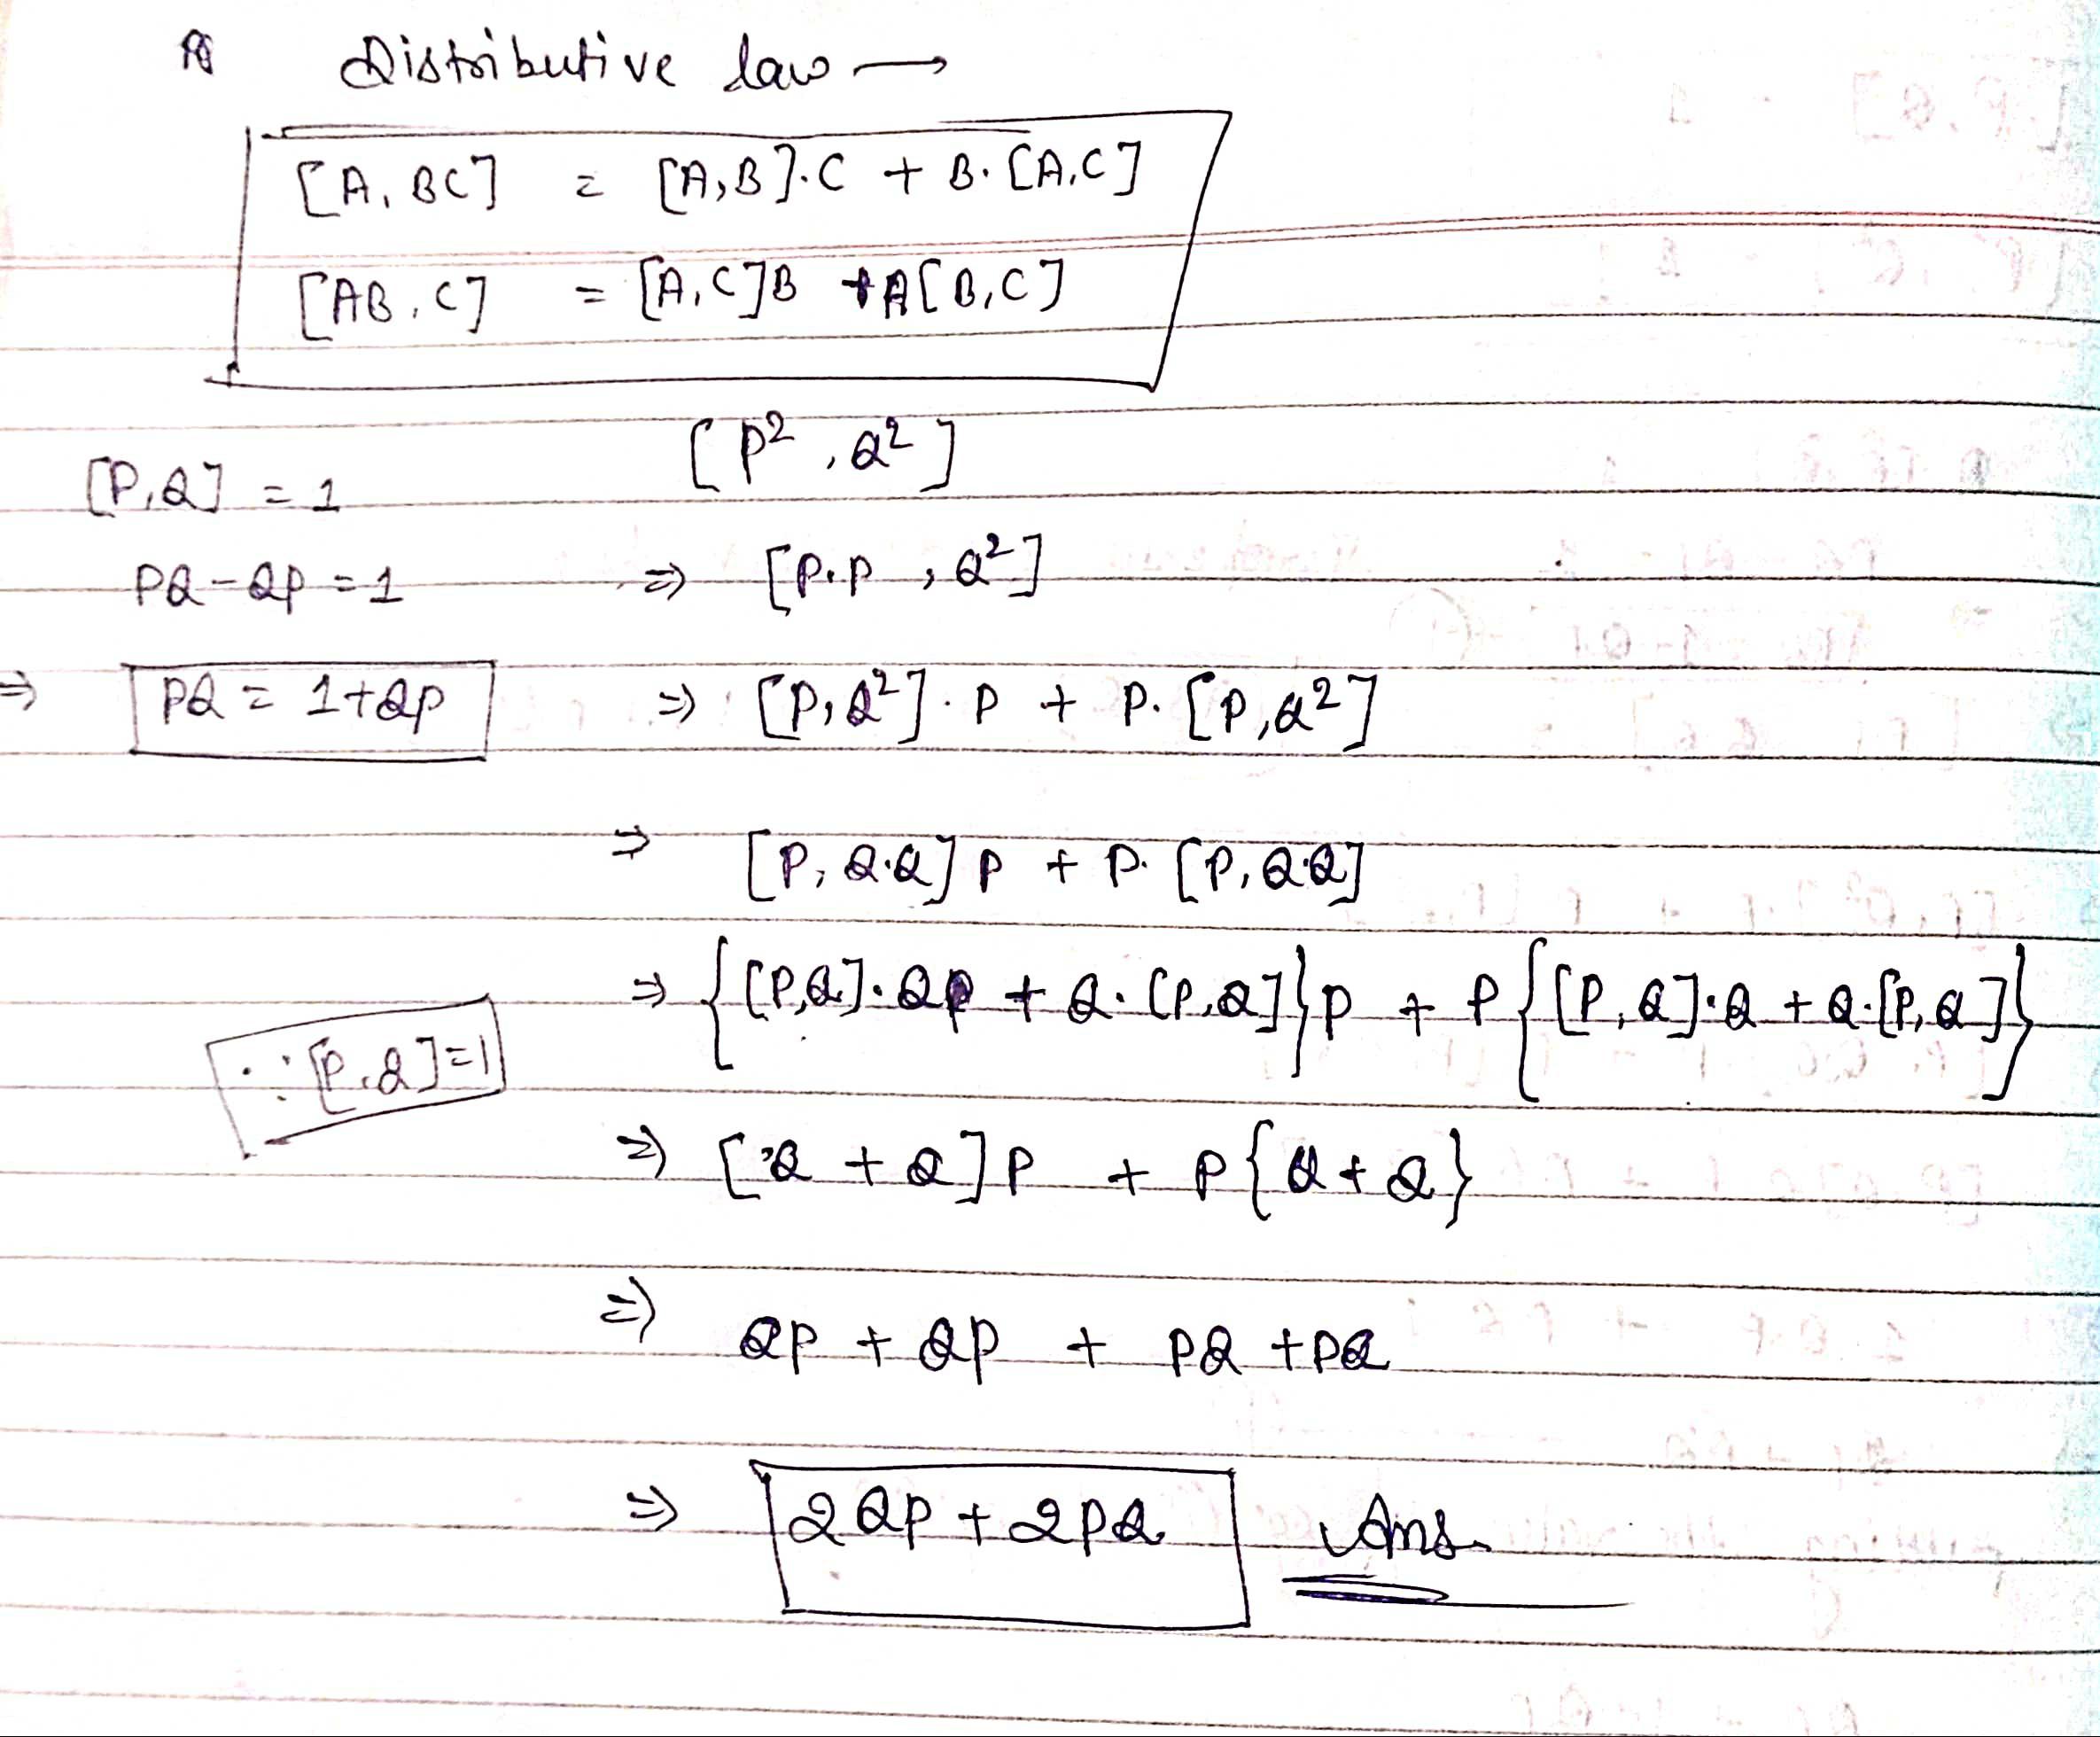 Distributive law →
[A, BC] = [A,B].C + B.[A,C]
[AB, C] = [A,C]B + A[B,C]
[P², Q²]
[P,Q] = 1
PQ - QP = 1 ⇒ [P.P, Q²]
⇒ PQ = 1+QP ⇒ [P,Q²].P + P.[P,Q²]
⇒ [P, Q.Q] P + P. [P, Q.Q]
⇒ {[P,Q].Q + Q.[P,Q]}P + P{[P,Q].Q + Q.[P,Q]}
∵ [P,Q]=1
⇒ [Q + Q]P + P{Q+Q}
⇒ QP + QP + PQ + PQ
⇒ 2QP + 2PQ Ans.